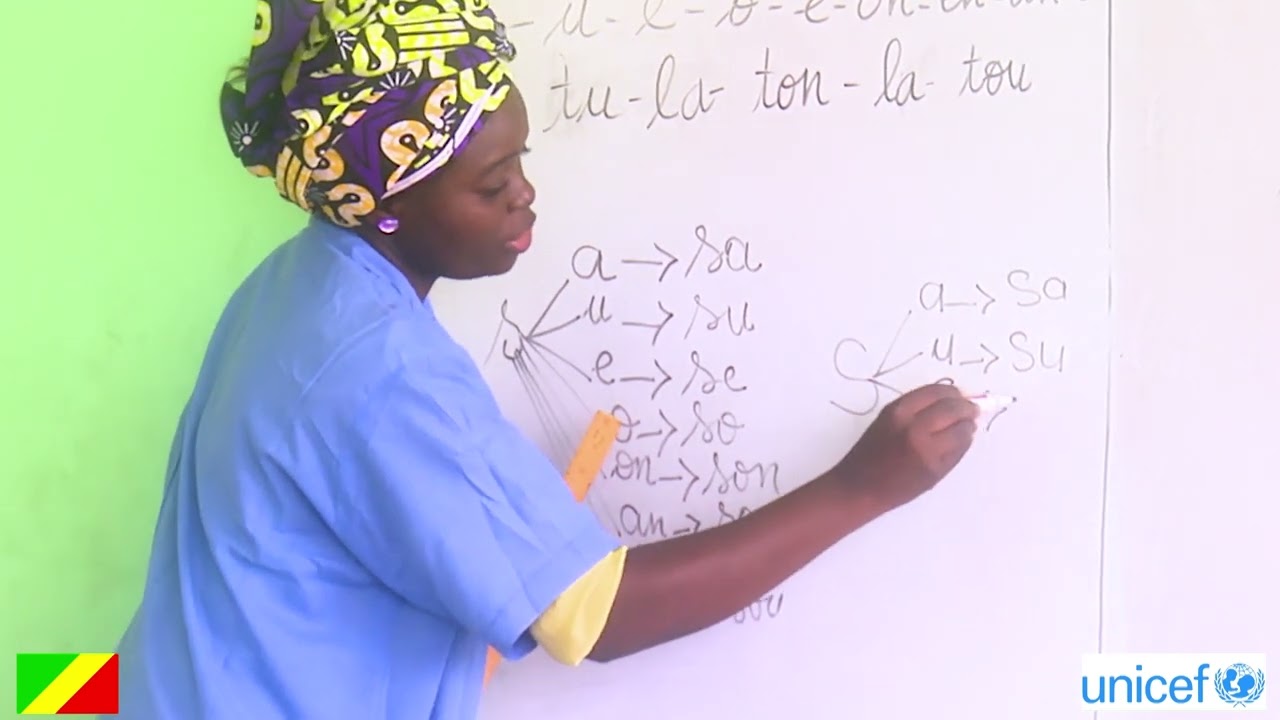 - u - e - o - e - on - en - an -
tu - la - ton - la - tou
a → sa
u → su
s
e → se
o → so
on → son
an →
sou
a → sa
u → su
S
unicef